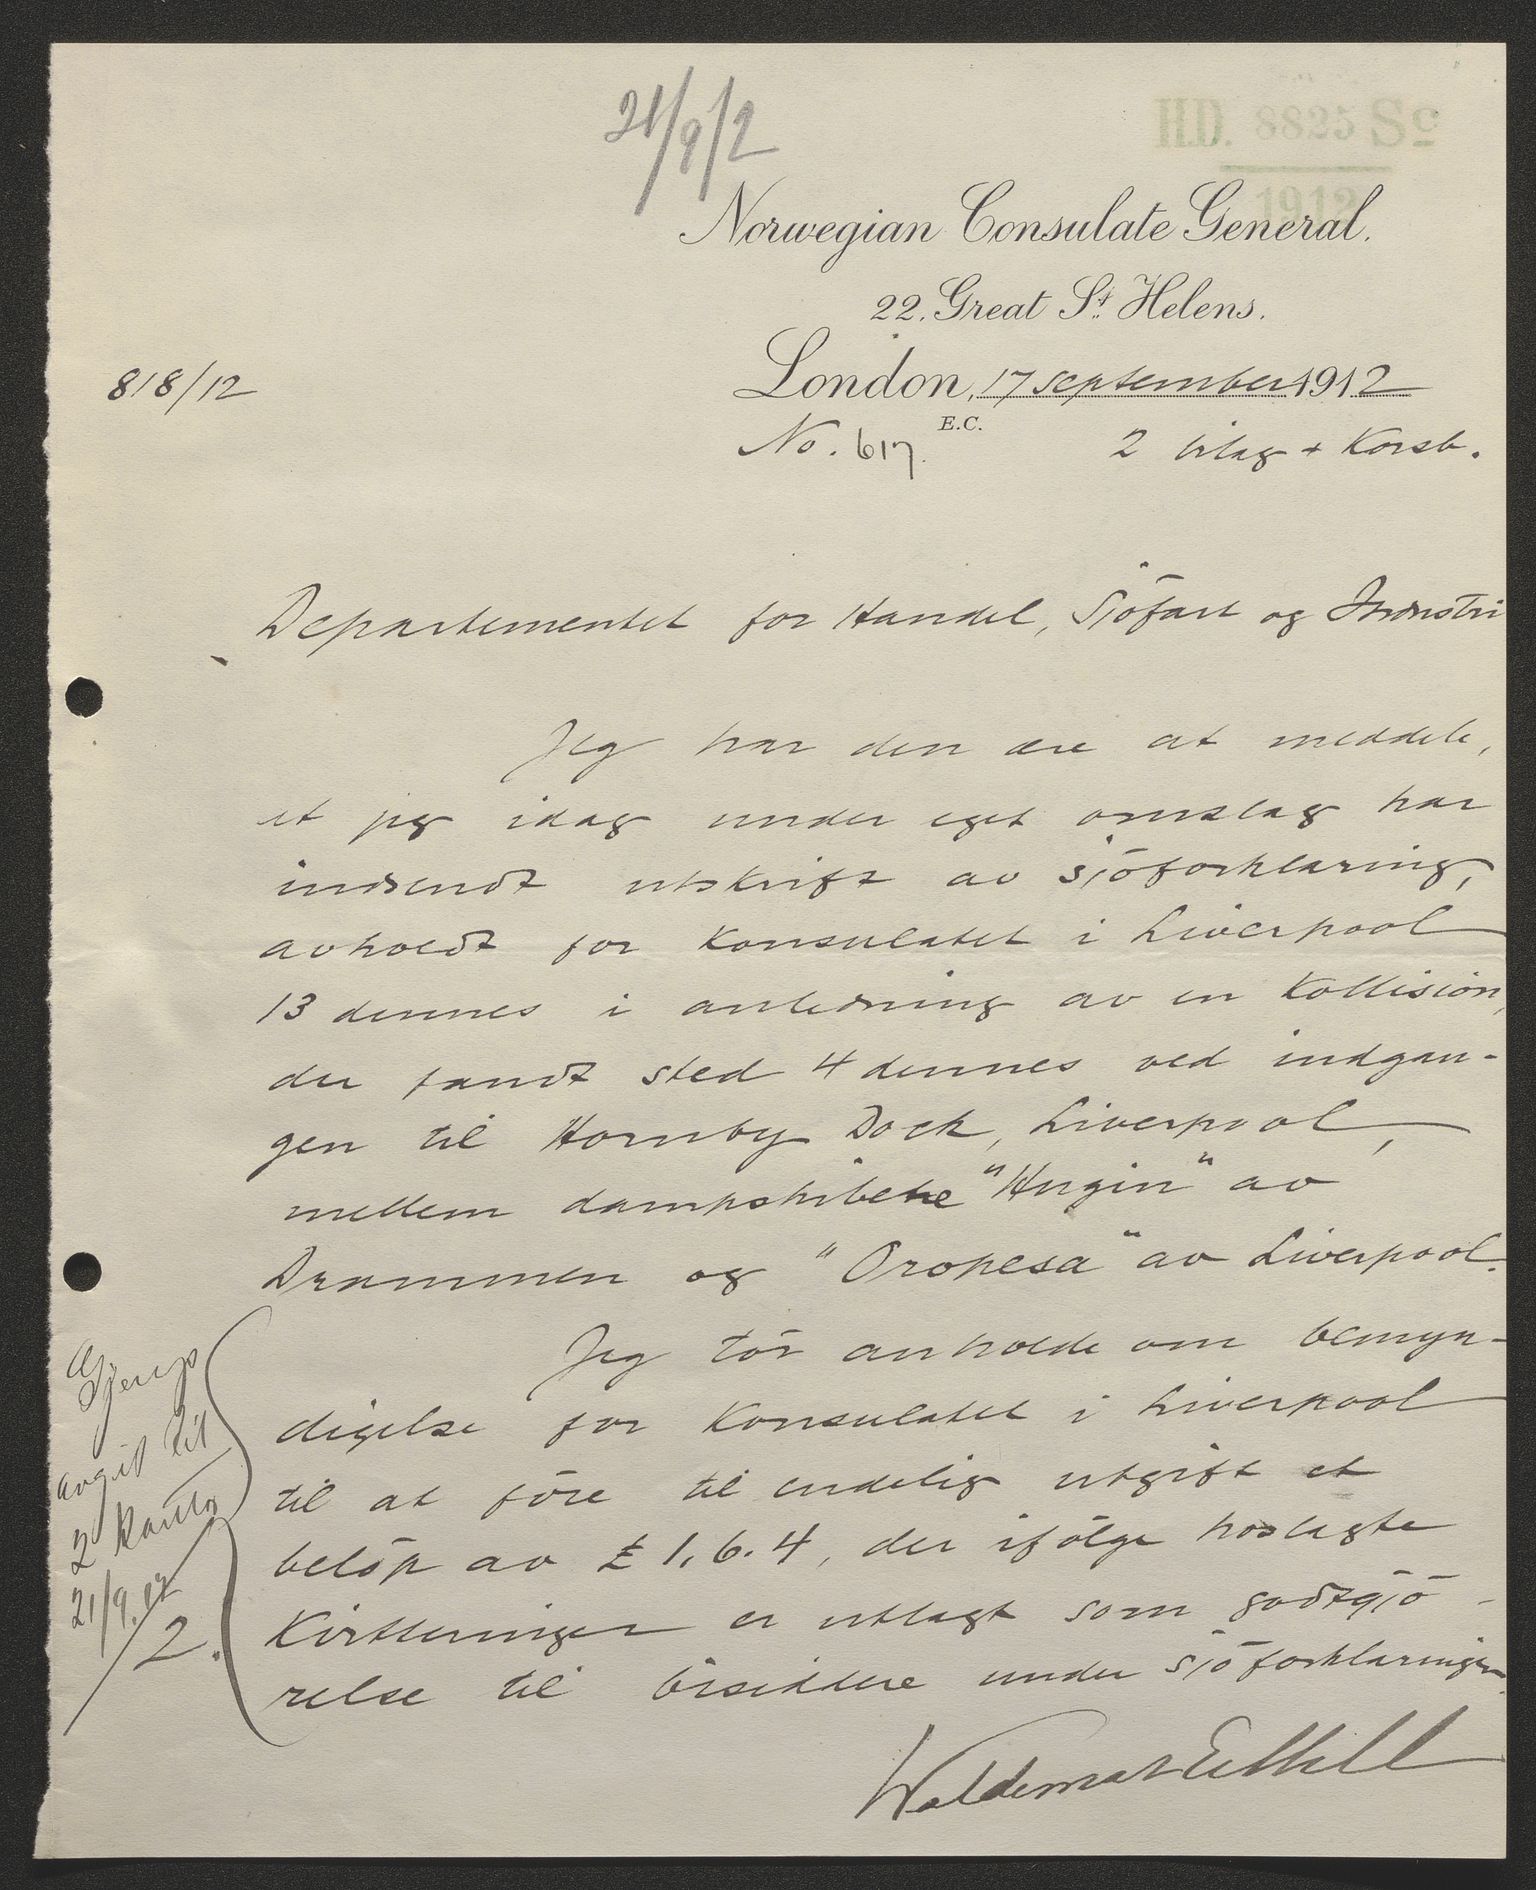 21/9/2
H.D. 8825 Sc
1912
Norwegian Consulate General.
22. Great St. Helens.
818/12
London, 17 september 1912
E.C.
No. 617.
2 bilag + Korsb.
Departementet for Handel, Sjöfart og Industri
Jeg har den ære at meddele,
at jeg idag under eget omslag har
indsendt utskrift av sjöforklaring,
avholdt for Konsulatet i Liverpool
13 dennes i anledning av en Kollision,
der fandt sted 4 dennes ved indgan-
gen til Hornby Dock, Liverpool,
mellem dampskibene "Hugin" av
Drammen og "Oropesa" av Liverpool.
Jeg tör anholde om bemyn-
digelse for Konsulatet i Liverpool
til at före til endelig utgift et
belöp av £ 1.6.4, der ifölge hoslagte
Kvitteringer er utlagt som godtgjö-
relse til bisiddere under sjöforklaringen.
Gjenp
avgit til
2 Kontor
21/9.12
2.
Waldemar